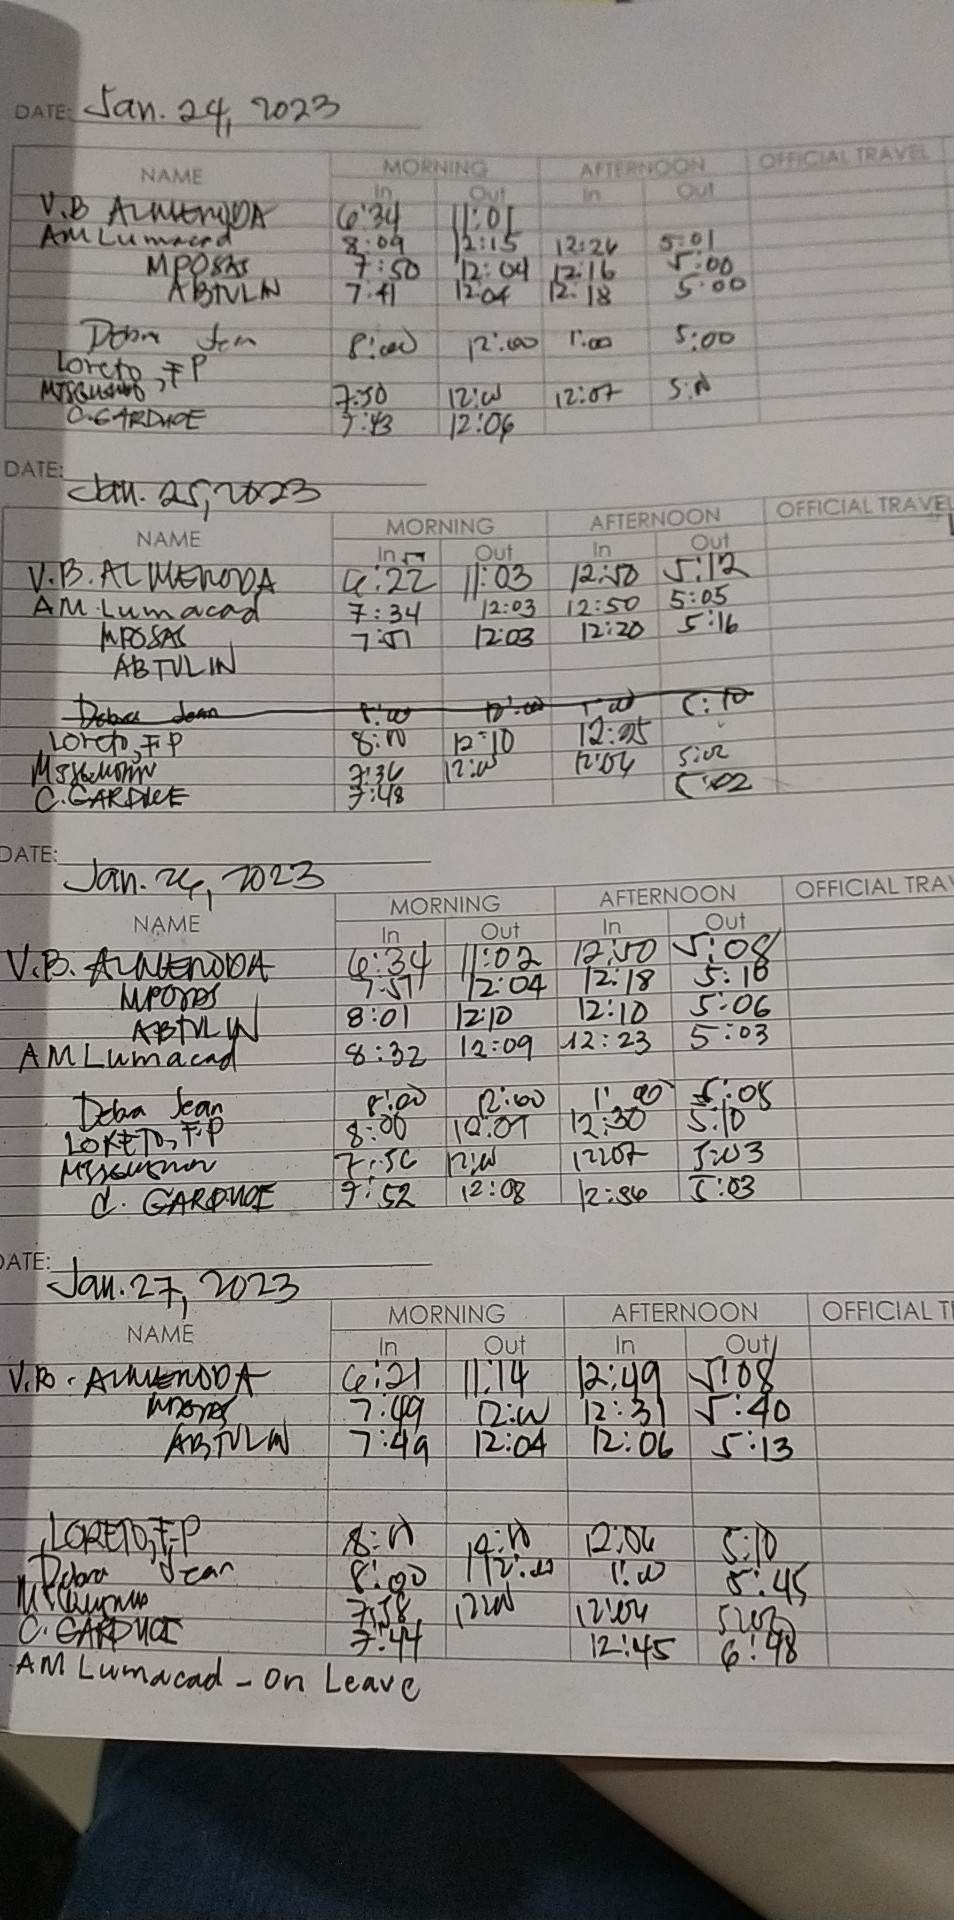 DATE: Jan. 24, 2023
NAME MORNING AFTERNOON OFFICIAL TRAVEL
In Out In Out
V.B ALMENODA 6:34 11:01
AM Lumacad 8:09 12:15 12:26 5:01
MPOSAS 7:50 12:04 12:16 5:00
ABTULIN 7:41 12:04 12:18 5:00
Debra Jean 8:00 12:00 1:00 5:00
Loreto, FP
7:50 12:00 12:07
C. GARDUCE 7:43 12:06
DATE: Jan. 25, 2023
NAME MORNING AFTERNOON OFFICIAL TRAVEL
In Out In Out
V.B. ALMENODA 6:22 11:03 12:50 5:12
AM Lumacad 7:34 12:03 12:50 5:05
MPOSAS 7:51 12:03 12:20 5:16
ABTULIN
Debra Jean 8:00 12:00 1:00 5:10
Loreto, FP 8:00 12:10 12:05
7:36 12:00 12:04 5:02
C. GARDUCE 7:48 5:02
DATE: Jan. 26, 2023
NAME MORNING AFTERNOON OFFICIAL TRAV
In Out In Out
V.B. ALMENODA 6:34 11:02 12:50 5:08
MPOSAS 7:57 12:04 12:18 5:10
ABTULIN 8:01 12:10 12:10 5:06
AM Lumacad 8:32 12:09 12:23 5:03
Debra Jean 8:00 12:00 1:00 5:05
LORETO, F.P 8:00 12:07 12:30 5:10
7:56 12:00 12207 5:03
C. GARDUCE 7:52 12:08 12:36 5:03
DATE: Jan. 27, 2023
NAME MORNING AFTERNOON OFFICIAL T
In Out In Out
V.B. ALMENODA 6:21 11:14 12:49 5:08
MPOSAS 7:49 12:00 12:31 5:40
ABTULIN 7:49 12:04 12:06 5:13
LORETO, F.P 8:00 12:00 12:06 5:10
Debra Jean 8:00 12:00 1:00 5:45
7:58 1200 12:04
C. GARDUCE 7:44 12:45 6:48
AM Lumacad - on Leave